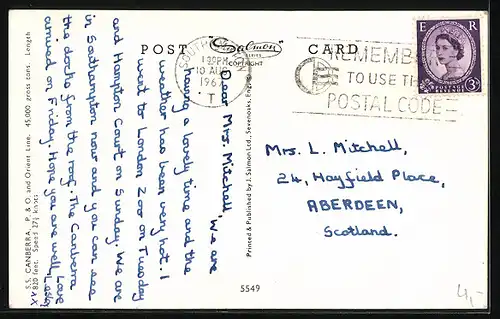 POST CARD
Salmon
SERIES
COPYRIGHT
SOUTHAMPTON
1 PM
10 AUG
196
T
REMEMBER
TO USE THE
POSTAL CODE
E R
POSTAGE REVENUE
3D
Dear Mrs. Mitchell, We are
having a lovely time and the
weather has been very hot. I
went to London Zoo on Tuesday
and Hampton Court on Sunday. We are
in Southampton now and you can see
the docks from the roof. The Canberra
arrived on Friday. Hope you are well. Love
Lesley
x x x
S.S. CANBERRA, P. & O. and Orient Line. 45,000 gross tons. Length
820 feet. Speed 27½ knots.
Printed & Published by J. Salmon Ltd., Sevenoaks, England
Mrs. L. Mitchell,
24, Hayfield Place,
ABERDEEN,
Scotland.
5549
4,-